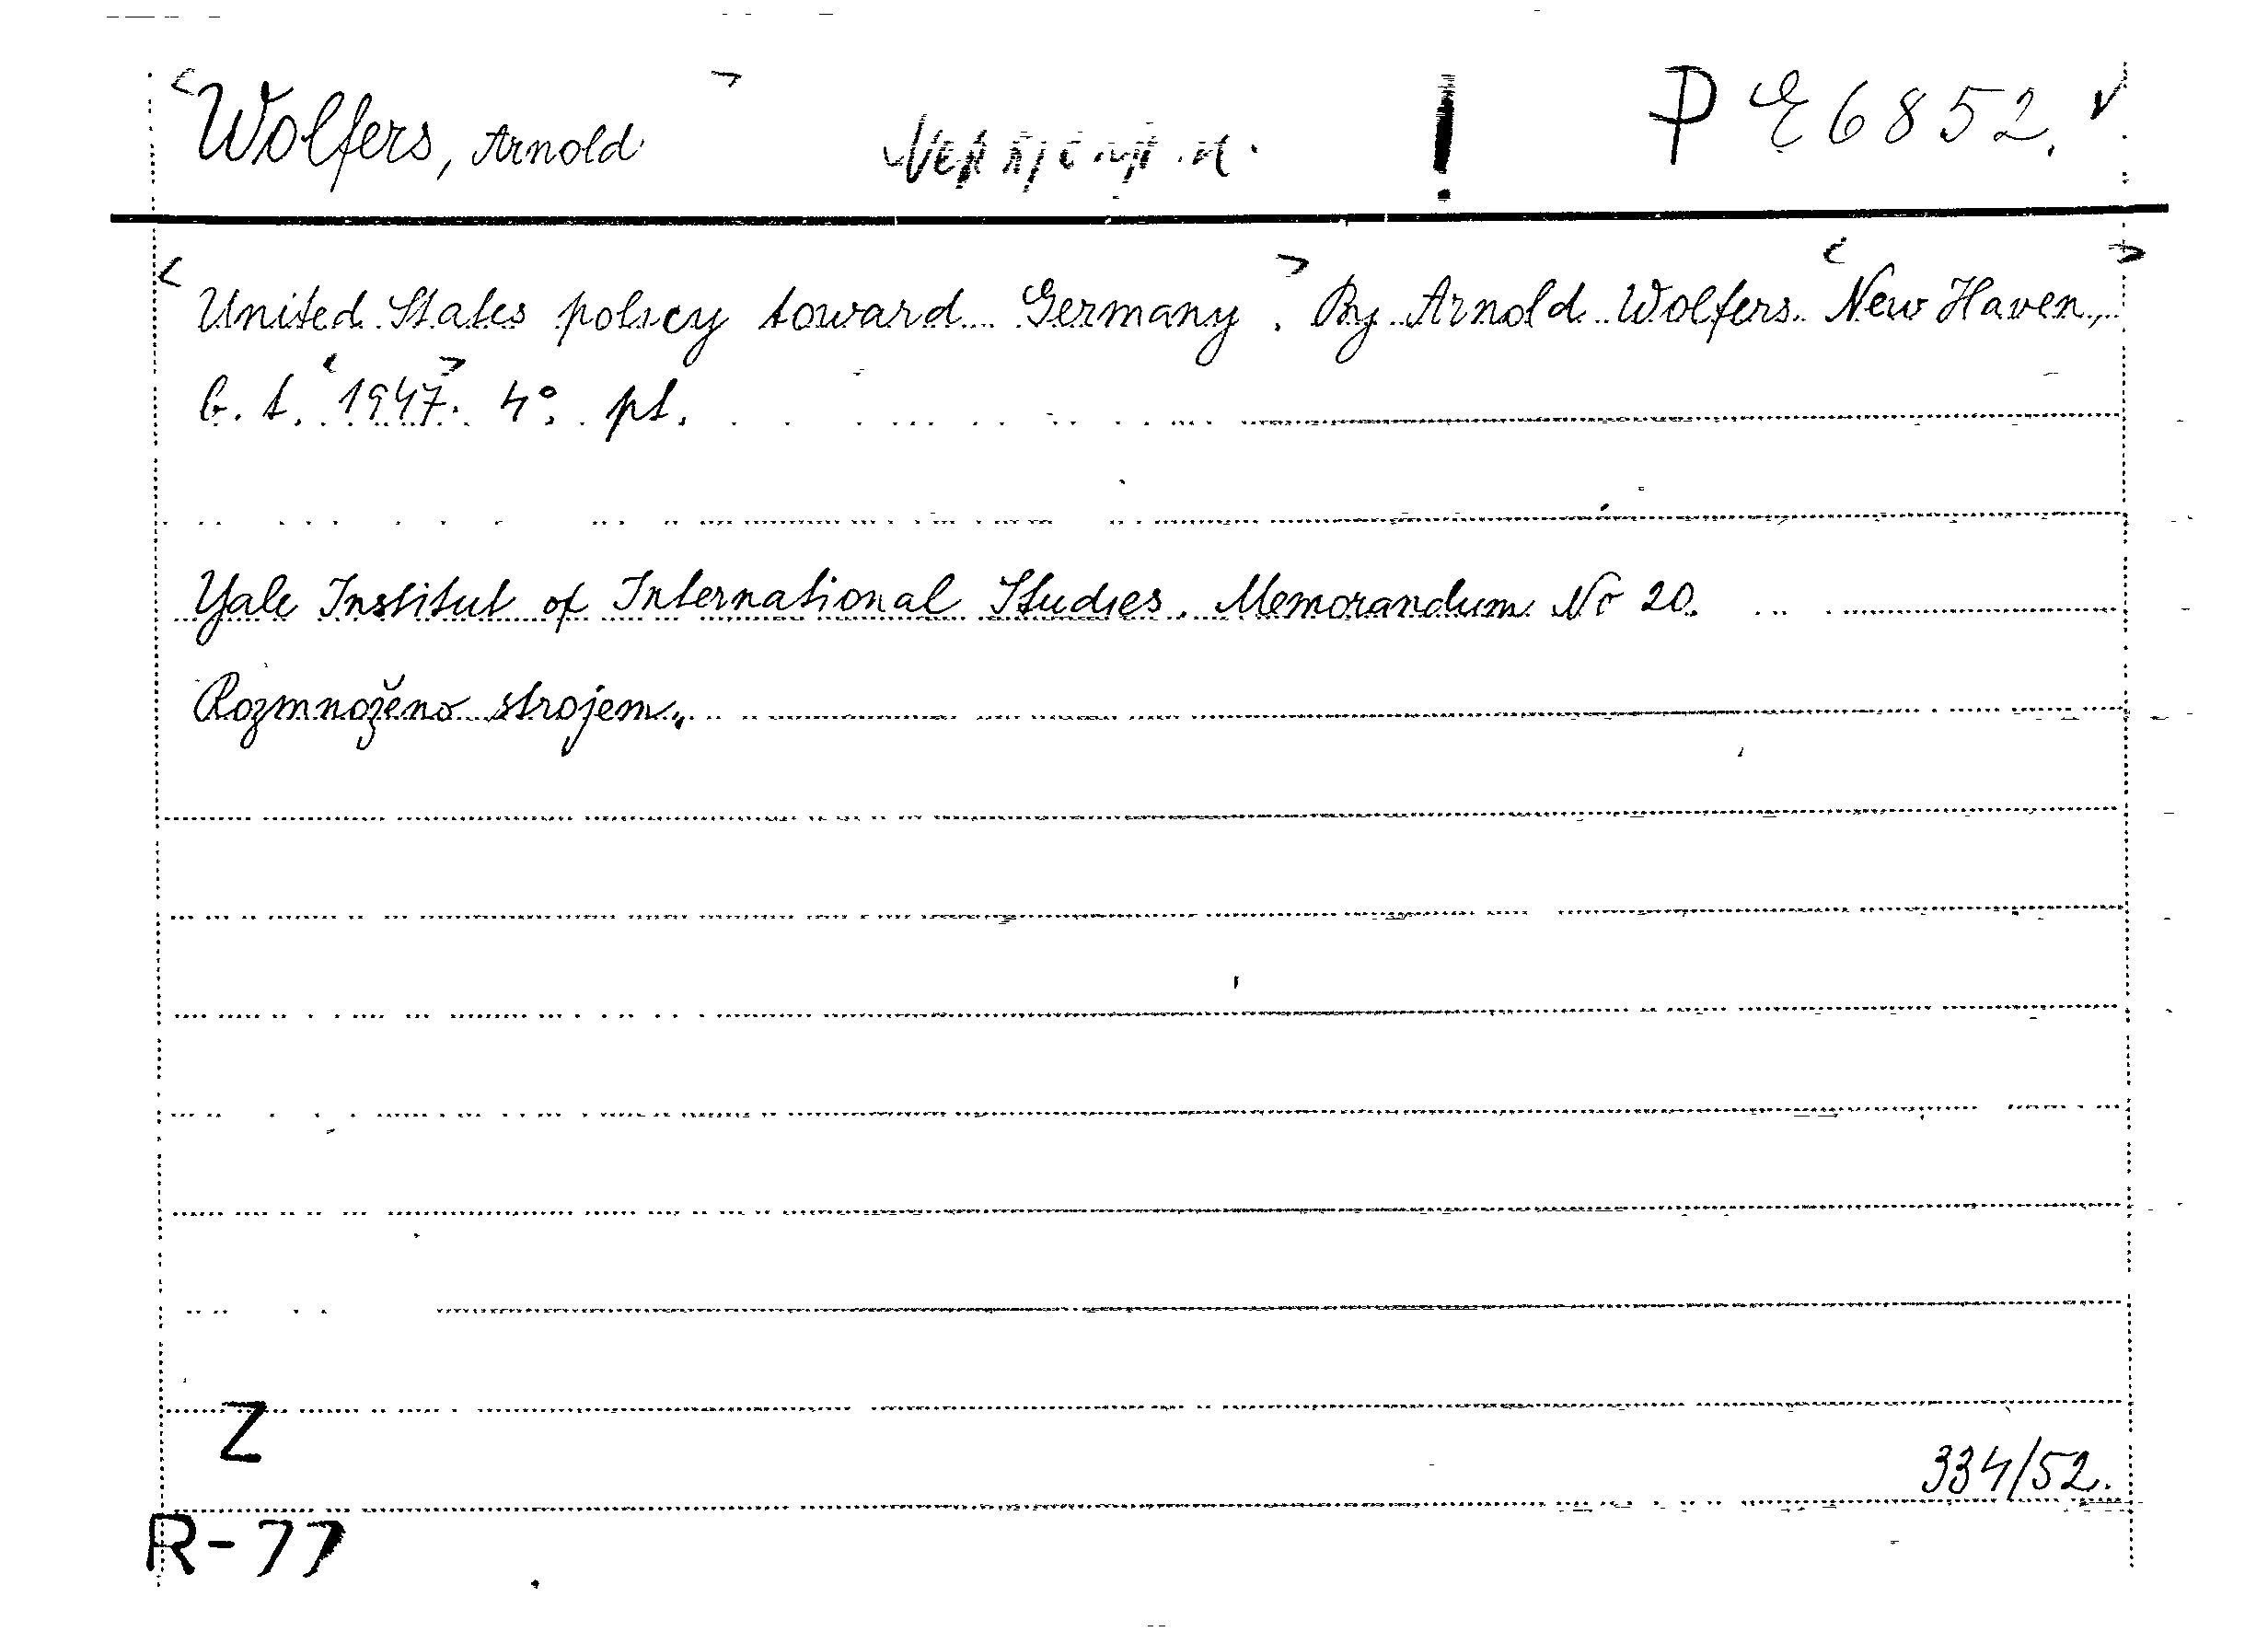 <Wolfers, Arnold> ! P E 6852. v
<United States policy toward Germany>. By Arnold Wolfers. <New Haven,>
b. t. <1947>. 4°. pt.
Yale Institut of International Studies. Memorandum No 20.
Rozmnoženo strojem.
Z
334/52.
R-77